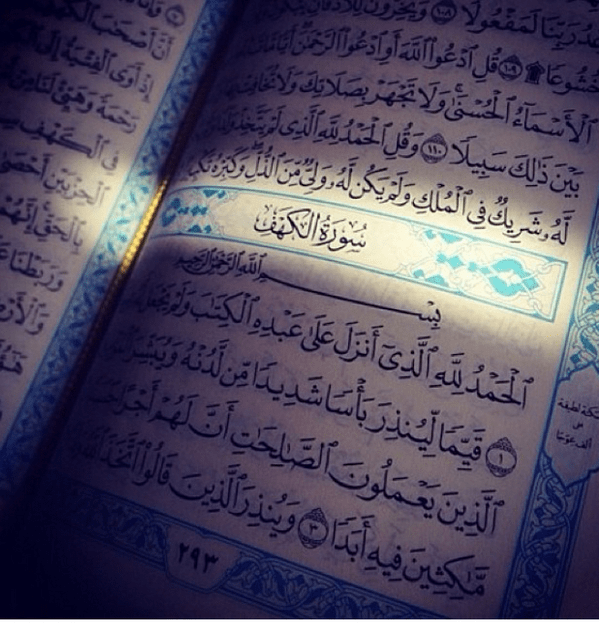 رَبِّنَا لَمَفْعُولًا ١٠٨ وَيَخِرُّونَ لِلْأَذْقَانِ
خُشُوعًا ۩ ١٠٩ قُلِ ٱدْعُوا۟ ٱللَّهَ أَوِ ٱدْعُوا۟ ٱلرَّحْمَٰنَ أَيًّا مَّا
ٱلْأَسْمَآءُ ٱلْحُسْنَىٰ وَلَا تَجْهَرْ بِصَلَاتِكَ وَلَا تُخَافِتْ
بَيْنَ ذَٰلِكَ سَبِيلًا ١١٠ وَقُلِ ٱلْحَمْدُ لِلَّهِ ٱلَّذِى لَمْ يَتَّخِذْ
لَّهُۥ شَرِيكٌ فِى ٱلْمُلْكِ وَلَمْ يَكُن لَّهُۥ وَلِىٌّ مِّنَ ٱلذُّلِّ وَكَبِّرْهُ
سُورَةُ الكَهْفِ
بِسْمِ ٱللَّهِ ٱلرَّحْمَٰنِ ٱلرَّحِيمِ
ٱلْحَمْدُ لِلَّهِ ٱلَّذِىٓ أَنزَلَ عَلَىٰ عَبْدِهِ ٱلْكِتَٰبَ وَلَمْ يَجْعَل
١ قَيِّمًا لِّيُنذِرَ بَأْسًا شَدِيدًا مِّن لَّدُنْهُ وَيُبَشِّرَ
ٱلَّذِينَ يَعْمَلُونَ ٱلصَّٰلِحَٰتِ أَنَّ لَهُمْ أَجْرًا
مَّٰكِثِينَ فِيهِ أَبَدًا ٣ وَيُنذِرَ ٱلَّذِينَ قَالُوا۟ ٱتَّخَذَ ٱللَّهُ
٢٩٣
سكتة لطيفة
على
ألف عوجا
وَإِنَّا
أَنَّ أَصْحَٰبَ ٱلْكَهْفِ
إِذْ أَوَى ٱلْفِتْيَةُ إِلَى
رَحْمَةً وَهَيِّئْ لَنَا مِنْ
فِى ٱلْكَهْفِ
ٱلْحِزْبَيْنِ أَحْصَىٰ
بِٱلْحَقِّ إِنَّهُمْ
وَرَبَطْنَا